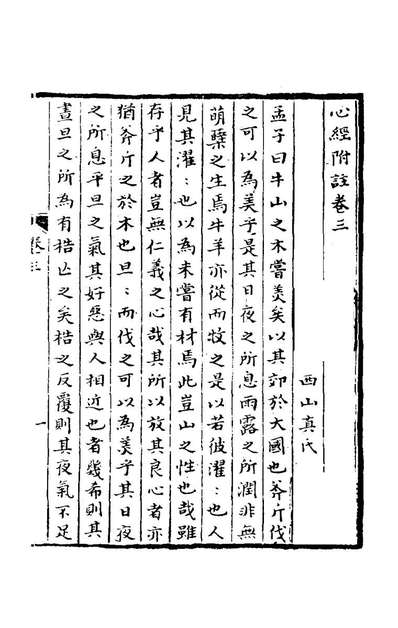 心經附註卷三
西山真氏
孟子曰牛山之木嘗羙矣以其郊於大國也斧斤伐
之可以為羙乎是其日夜之所息雨露之所潤非無
萌櫱之生焉牛羊亦從而牧之是以若彼濯:也人
見其濯:也以為未嘗有材焉此豈山之性也哉雖
存乎人者豈無仁義之心哉其所以放其良心者亦
猶斧斤之於木也旦:而伐之可以為羙乎其日夜
之所息平旦之氣其好惡與人相近也者幾希則其
晝旦之所為有梏亡之矣梏之反覆則其夜氣不足
卷三
一